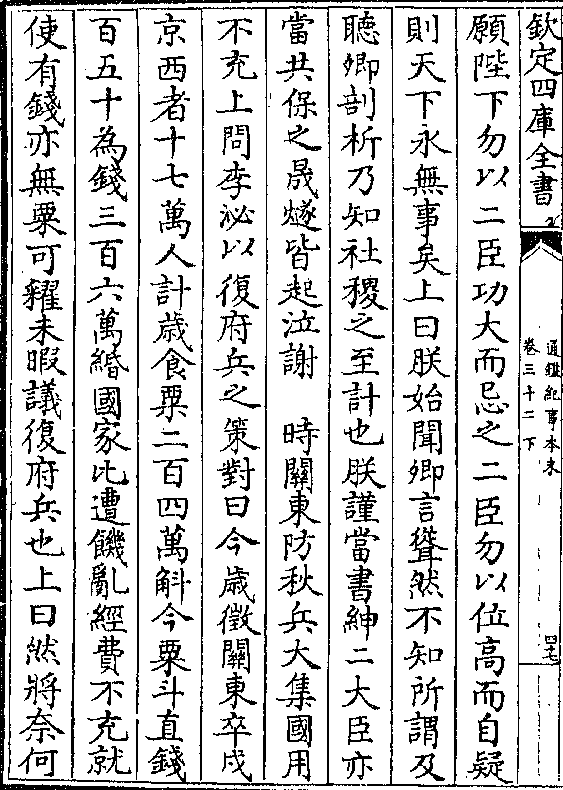 欽定四庫全書
通鑑紀事本末
卷三十二下
四七
願陛下勿以二臣功大而忌之二臣勿以位高而自疑
則天下永無事矣上曰朕始聞卿言聳然不知所謂及
聽卿剖析乃知社稷之至計也朕謹當書紳二大臣亦
當共保之晟燧皆起泣謝　時關東防秋兵大集國用
不充上問李泌以復府兵之策對曰今歲徵關東卒戍
京西者十七萬人計歲食粟二百四萬斛今粟斗直錢
百五十為錢三百六萬緡國家比遭饑亂經費不充就
使有錢亦無粟可糴未暇議復府兵也上曰然將奈何